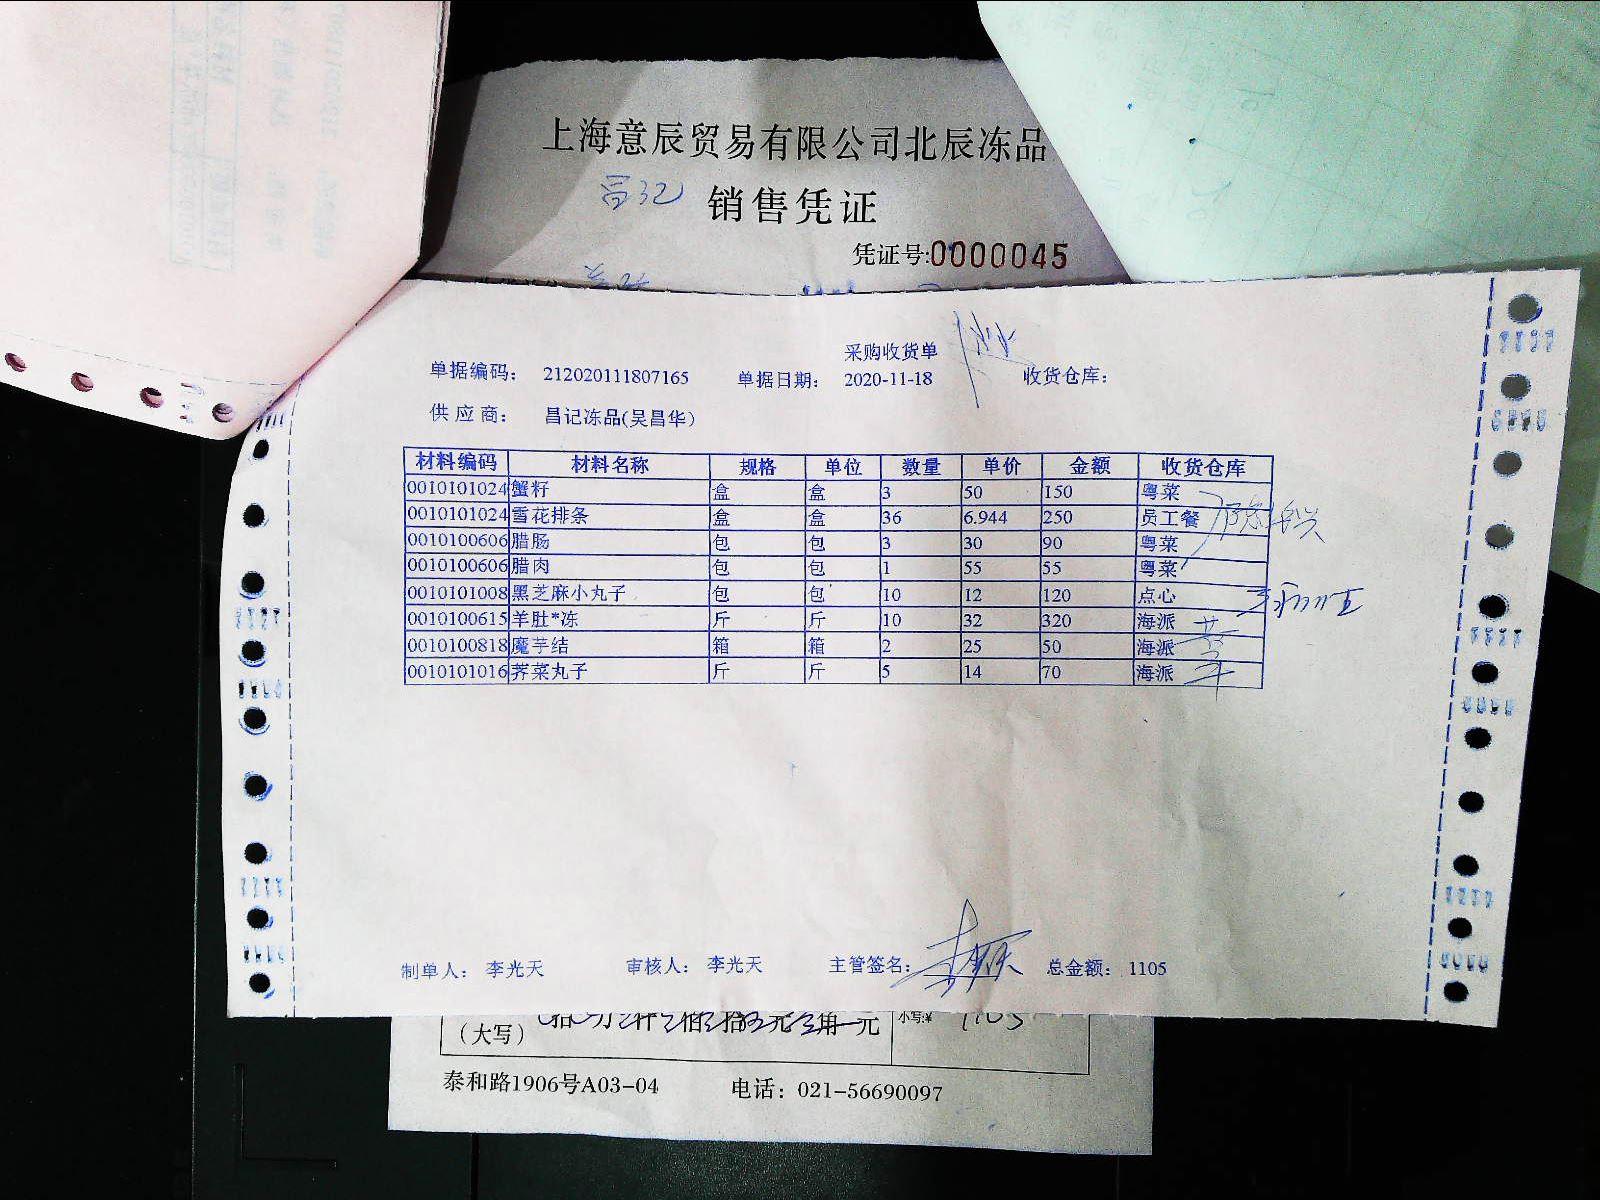 上海意辰贸易有限公司北辰冻品
昌记 销售凭证
凭证号:0000045
采购收货单
单据编码： 212020111807165 单据日期： 2020-11-18 收货仓库：
供应商： 昌记冻品(吴昌华)
材料编码 材料名称 规格 单位 数量 单价 金额 收货仓库
0010101024 蟹籽 盒 盒 3 50 150 粤菜
0010101024 雪花排条 盒 盒 36 6.944 250 员工餐
0010100606 腊肠 包 包 3 30 90 粤菜
0010100606 腊肉 包 包 1 55 55 粤菜
0010101008 黑芝麻小丸子 包 包 10 12 120 点心
0010100615 羊肚*冻 斤 斤 10 32 320 海派
0010100818 魔芋结 箱 箱 2 25 50 海派
0010101016 荠菜丸子 斤 斤 5 14 70 海派
制单人： 李光天 审核人： 李光天 主管签名： 总金额： 1105
(大写) 拾 万 仟 佰 拾 元 角 元 小写:¥ 1105
泰和路1906号A03-04 电话：021-56690097